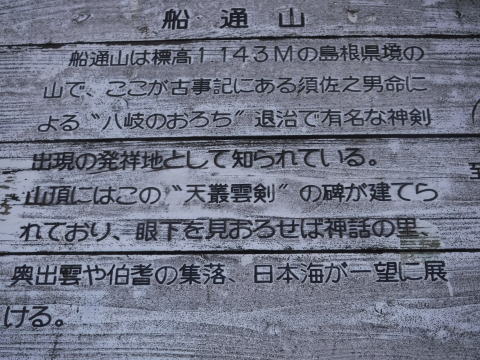 船通山
船通山は標高1.143Mの島根県境の
山で、ここが古事記にある須佐之男命に
よる〝八岐のおろち〟退治で有名な神剣
出現の発祥地として知られている。
山頂にはこの〝天叢雲剣〟の碑が建てら
れており、眼下を見おろせば神話の里、
奥出雲や伯耆の集落、日本海が一望に展
ける。